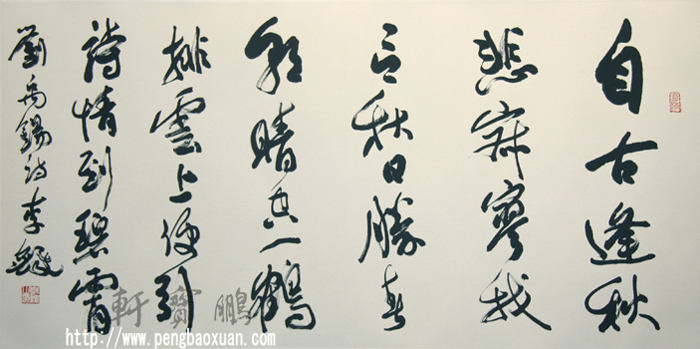 自古逢秋
悲寂寥我
言秋日勝春
朝晴空一鶴
排雲上便引
詩情到碧霄
劉禹錫詩李
軒寶鵬
http://www.pengbaoxuan.com/